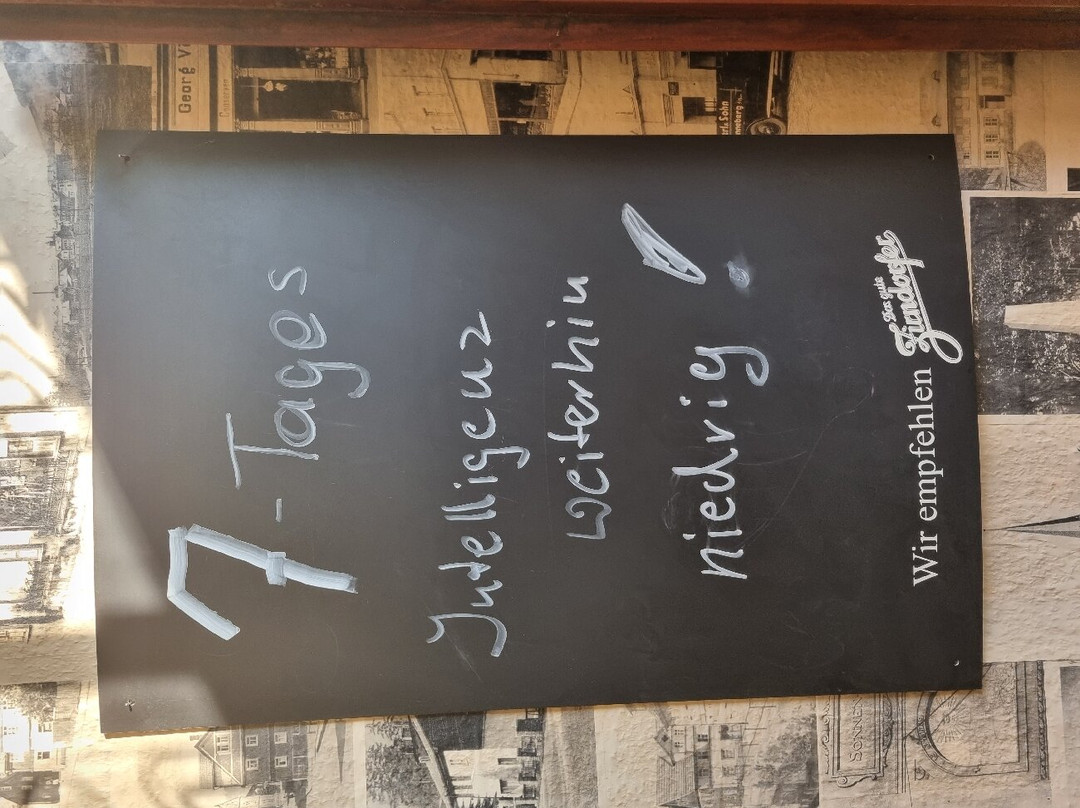 7-Tages
Intelligenz
weiterhin
niedrig!
Wir empfehlen
Das gute
Zirndorfer
Georg
SONNE